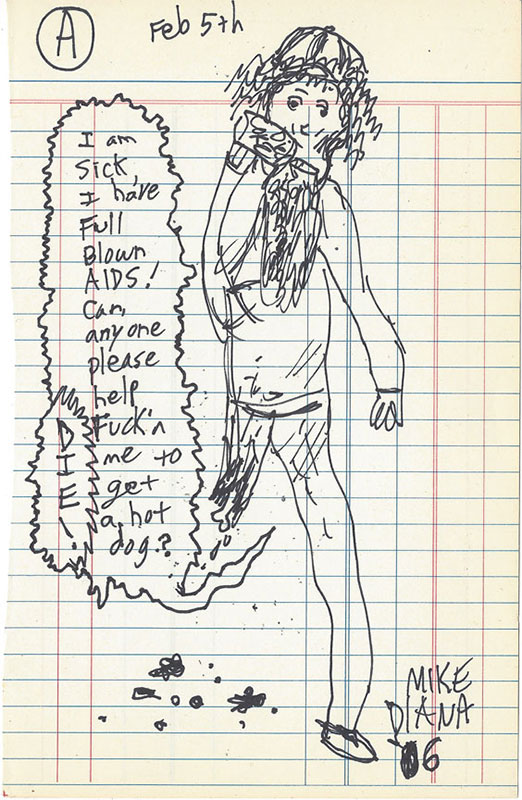 A
Feb 5th
I am
Sick,
I have
Full
Blown
AIDS!
Can,
anyone
please
help
Fuck'n
me to
get
a hot
dog?
DIE!
MIKE
DIANA
06